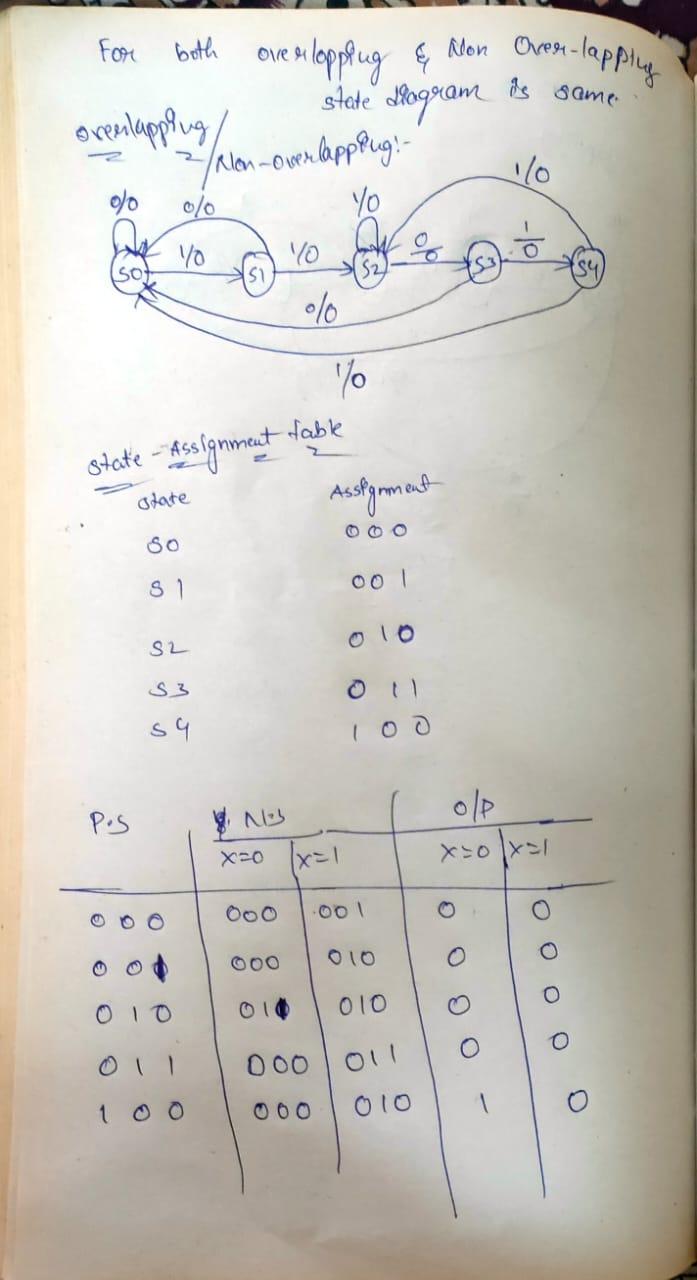 For both overlapping & Non Over-lapping
state diagram is same.
overlapping/
Non-overlapping:-
0/0 0/0 1/0 1/0
1/0 1/0 0/0 1/0
S0 S1 S2 S3 S4
0/0
1/0
State-Assignment table
State Assignment
S0 000
S1 001
S2 010
S3 011
S4 100
P.S N.S O/P
X=0 X=1 X=0 X=1
000 000 001 0 0
001 000 010 0 0
010 011 010 0 0
011 000 011 0 0
100 000 010 1 0